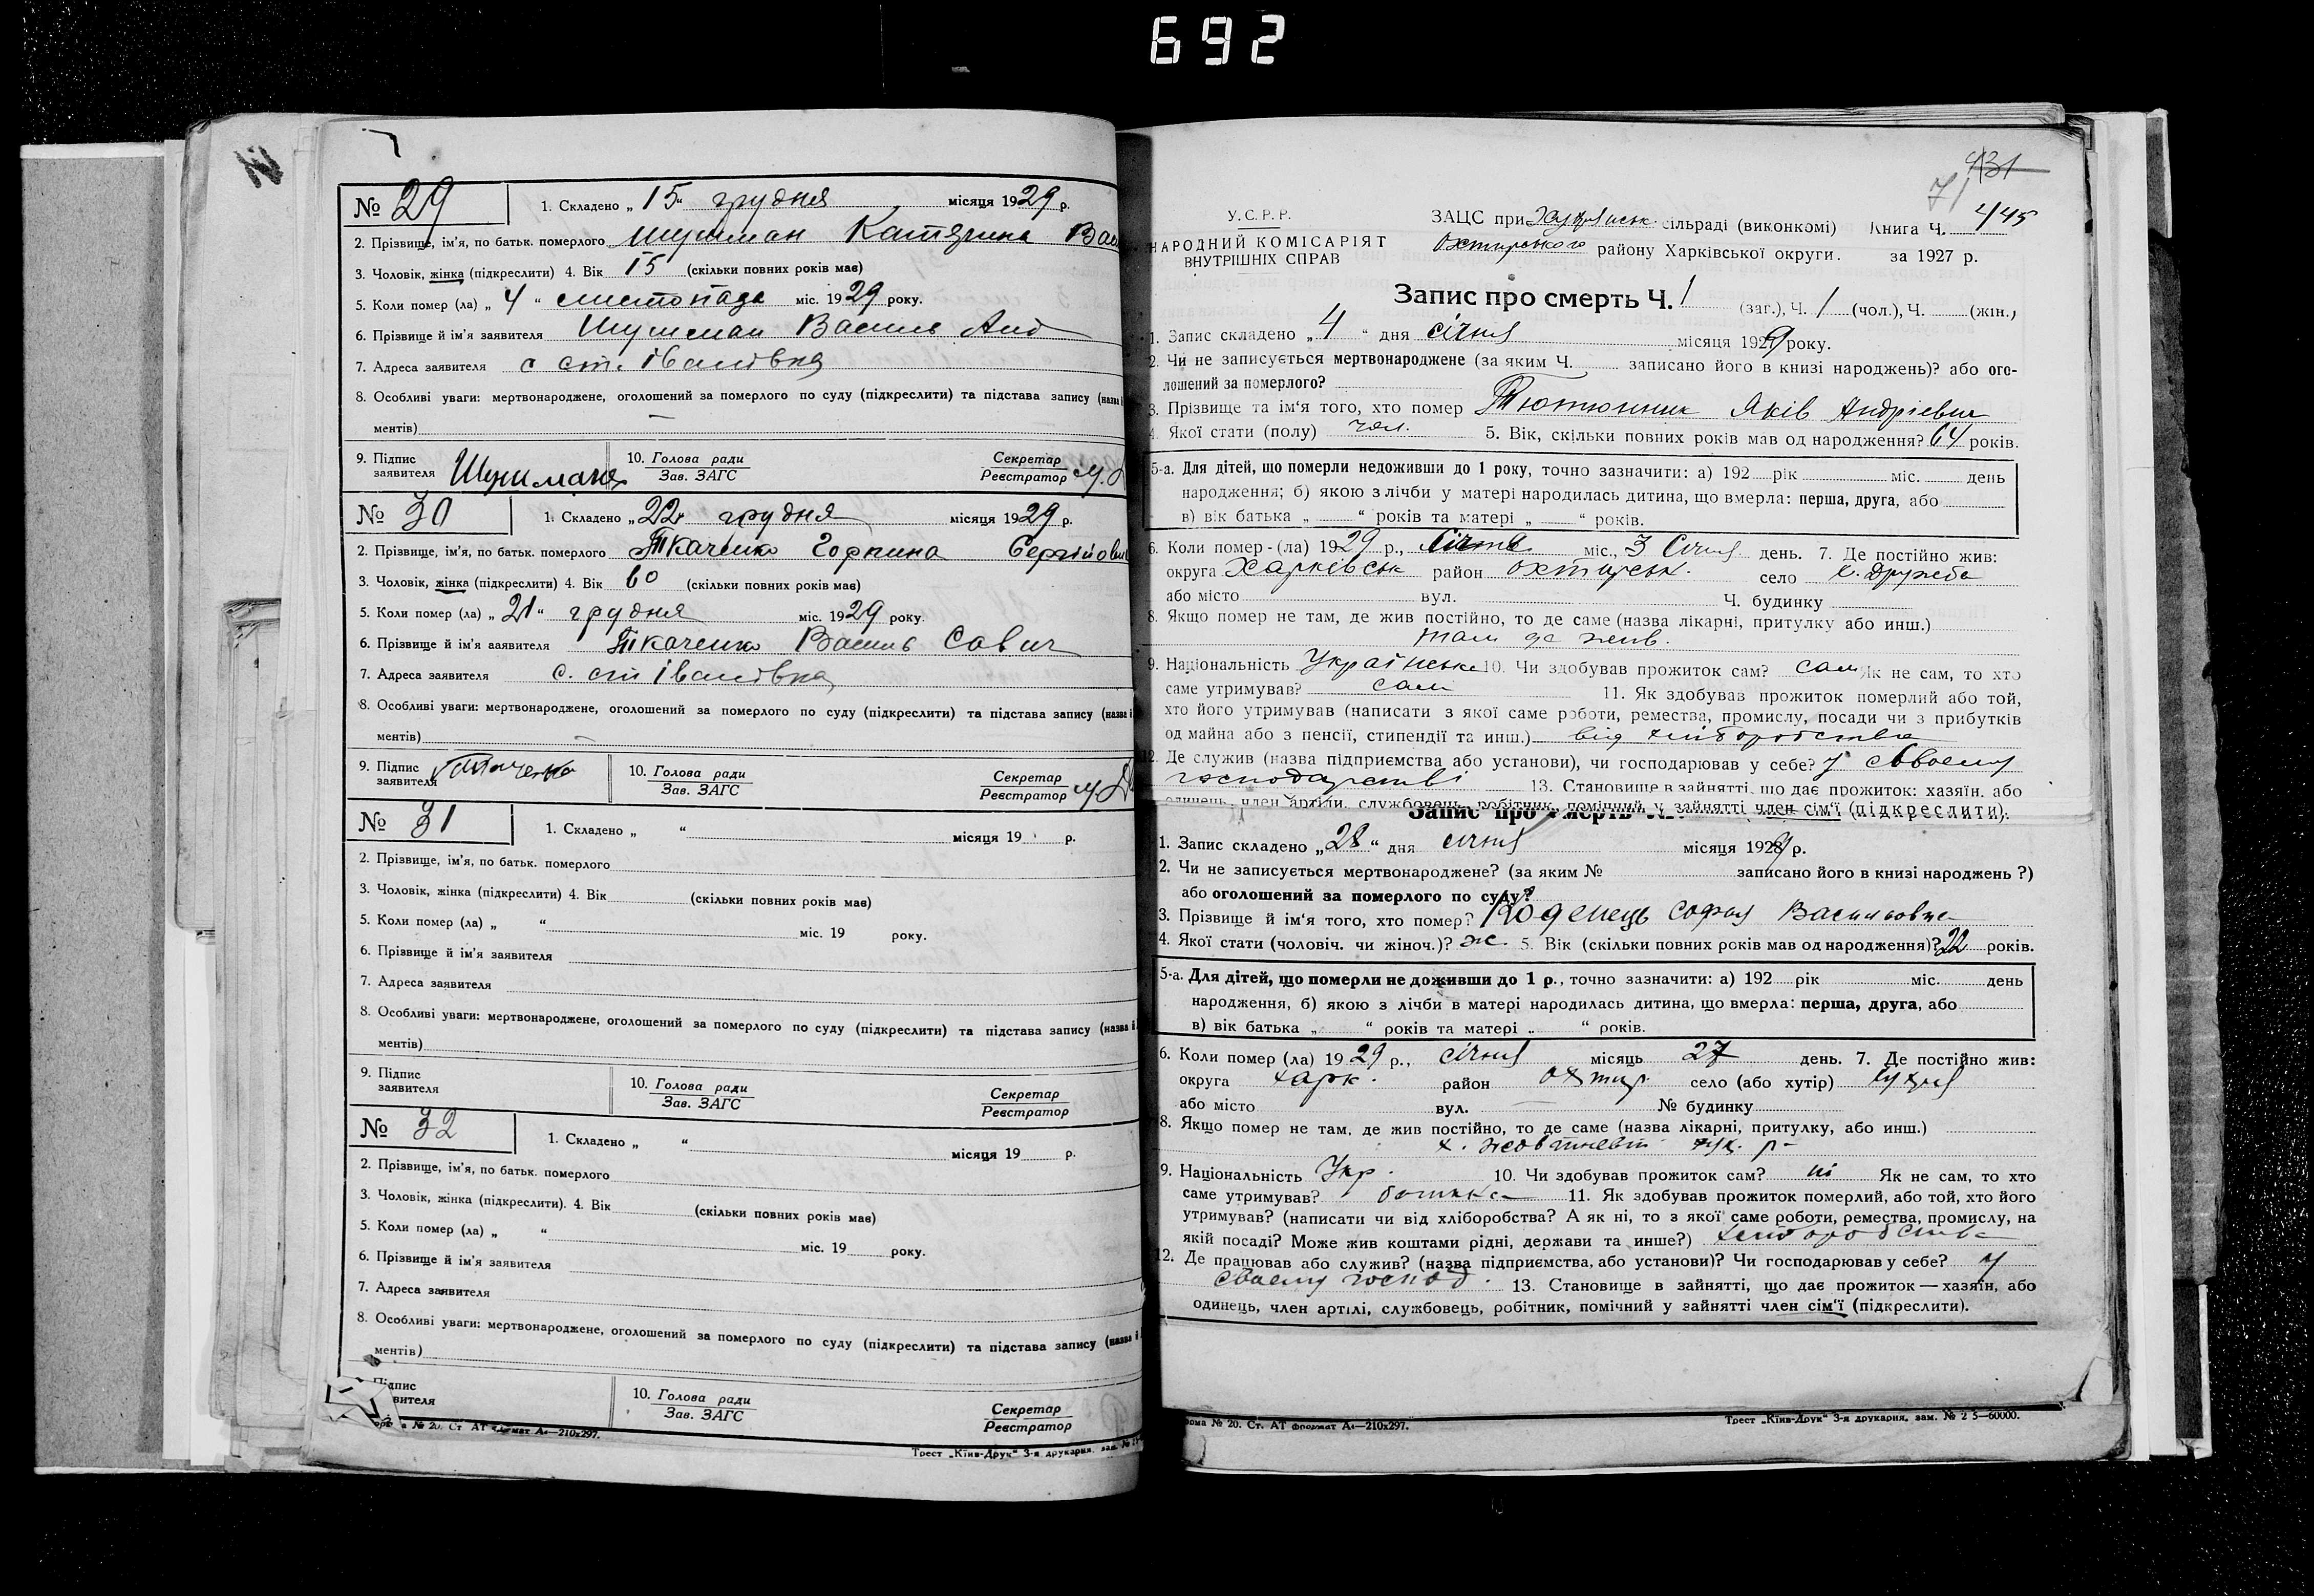 692
№ 29 1. Складено „ 15 “ грудня місяця 1929 р.
2. Прізвище, ім'я, по батьк. померлого Шушман Катерина Вас
3. Чоловік, жінка (підкреслити) 4. Вік 15 (скільки повних років має)
5. Коли помер (ла) „ 4 “ листопада міс. 1929 року.
6. Прізвище й ім'я заявителя Шушман Василь Анд
7. Адреса заявителя с ст. Іванівка
8. Особливі уваги: мертвонароджене, оголошений за померлого по суду (підкреслити) та підстава запису (назва і
ментів) —
9. Підпис заявителя Шушманя 10. Голова ради Зав. ЗАГС Секретар Реєстратор
№ 30 1. Складено „ 22 “ грудня місяця 1929 р.
2. Прізвище, ім'я, по батьк. померлого Ткаченко Горпина Сергійовн
3. Чоловік, жінка (підкреслити) 4. Вік 60 (скільки повних років має)
5. Коли помер (ла) „ 21 “ грудня міс. 1929 року.
6. Прізвище й ім'я заявителя Ткаченко Василь Савич
7. Адреса заявителя с. ст Іванівка
8. Особливі уваги: мертвонароджене, оголошений за померлого по суду (підкреслити) та підстава запису (назва і
ментів) —
9. Підпис заявителя Ткаченко 10. Голова ради Зав. ЗАГС Секретар Реєстратор
№ 31 1. Складено „ “ місяця 19 р.
2. Прізвище, ім'я, по батьк. померлого
3. Чоловік, жінка (підкреслити) 4. Вік (скільки повних років має)
5. Коли помер (ла) „ “ міс. 19 року.
6. Прізвище й ім'я заявителя
7. Адреса заявителя
8. Особливі уваги: мертвонароджене, оголошений за померлого по суду (підкреслити) та підстава запису (назва і
ментів)
9. Підпис заявителя 10. Голова ради Зав. ЗАГС Секретар Реєстратор
№ 32 1. Складено „ “ місяця 19 р.
2. Прізвище, ім'я, по батьк. померлого
3. Чоловік, жінка (підкреслити). 4. Вік (скільки повних років має)
5. Коли помер (ла) „ “ міс. 19 року.
6. Прізвище й ім'я заявителя
7. Адреса заявителя
8. Особливі уваги: мертвонароджене, оголошений за померлого по суду (підкреслити) та підстава запису (назва і
ментів)
Підпис
вителя 10. Голова ради Зав. ЗАГС Секретар Реєстратор
а № 20. Ст АТ формат А4—210х297.
Трест „Київ-Друк“ 3-я друкарня, зам. №
431
71
У.С.Р.Р.
НАРОДНИЙ КОМІСАРІЯТ
ВНУТРІШНІХ СПРАВ
ЗАЦС при сільраді (виконкомі) Книга Ч. 445
Охтирського району Харківської округи. за 1927 р.
Запис про смерть Ч. 1 (заг.), Ч. 1 (чол.), Ч. (жін.)
1. Запис складено „ 4 “ дня січня місяця 1929 року.
2. Чи не записується мертвонароджене (за яким Ч. записано його в книзі народжень)? або ого-
лошений за померлого?
3. Прізвище та ім'я того, хто помер Тютюнник Яків Андрієвич
4. Якої стати (полу) чол. 5. Вік, скільки повних років мав од народження? 64 років.
5-а. Для дітей, що померли недоживши до 1 року, точно зазначити: а) 192 рік міс. день
народження; б) якою з лічби у матері народилась дитина, що вмерла: перша, друга, або
в) вік батька „ “ років та матері „ “ років.
6. Коли помер-(ла) 1929 р., січня міс., 3 Січня день. 7. Де постійно жив:
округа Харківськ район Охтирськ. село х. Дружба
або місто вул. Ч. будинку
8. Якщо помер не там, де жив постійно, то де саме (назва лікарні, притулку або инш.)
там де жив.
9. Національність Українська 10. Чи здобував прожиток сам? сам Як не сам, то хто
саме утримував? сам 11. Як здобував прожиток померлий або той,
хто його утримував (написати з якої саме роботи, ремества, промислу, посади чи з прибутків
од майна або з пенсії, стипендії та инш.) від хліборобства
12. Де служив (назва підприємства або установи), чи господарював у себе? у Своєму
господарстві 13. Становище в зайнятті, що дає прожиток: хазяїн, або
одинець, член артіли, службовець, робітник, помічний у зайнятті член сім'ї (підкреслити).
Запис про смерть №
1. Запис складено „ 28 “ дня січня місяця 1929 р.
2. Чи не записується мертвонароджене? (за яким № записано його в книзі народжень?)
або оголошений за померлого по суду?
3. Прізвище й ім'я того, хто помер? Коденець Софья Васильовна
4. Якої стати (чоловіч. чи жіноч.)? ж. 5. Вік (скільки повних років мав од народження)? 22 років.
5-а. Для дітей, що померли не доживши до 1 р., точно зазначити: а) 192 рік міс. день
народження, б) якою з лічби в матері народилась дитина, що вмерла: перша, друга, або
в) вік батька „ “ років та матері „ “ років.
6. Коли помер (ла) 1929 р., січня місяць 27 день. 7. Де постійно жив:
округа Харк. район Охтир. село (або хутір) Хухря
або місто вул. — № будинку
8. Якщо помер не там, де жив постійно, то де саме (назва лікарні, притулку, або инш.)
9. Національність Укр. 10. Чи здобував прожиток сам? ні Як не сам, то хто
саме утримував? батько 11. Як здобував прожиток померлий, або той, хто його
утримував? (написати чи від хліборобства? А як ні, то з якої саме роботи, ремества, промислу, на
якій посаді? Може жив коштами рідні, держави та инше?) хліборобства
12. Де працював або служив? (назва підприємства, або установи)? Чи господарював у себе? у
своему господ. 13. Становище в зайнятті, що дає прожиток — хазяїн, або
одинець, член артілі, службовець, робітник, помічний у зайнятті член сім'ї (підкреслити).
рома № 20. Ст. АТ формат А4—210х297.
Трест „Київ-Друк“ 3-я друкарня, зам. № 2 5—60000.